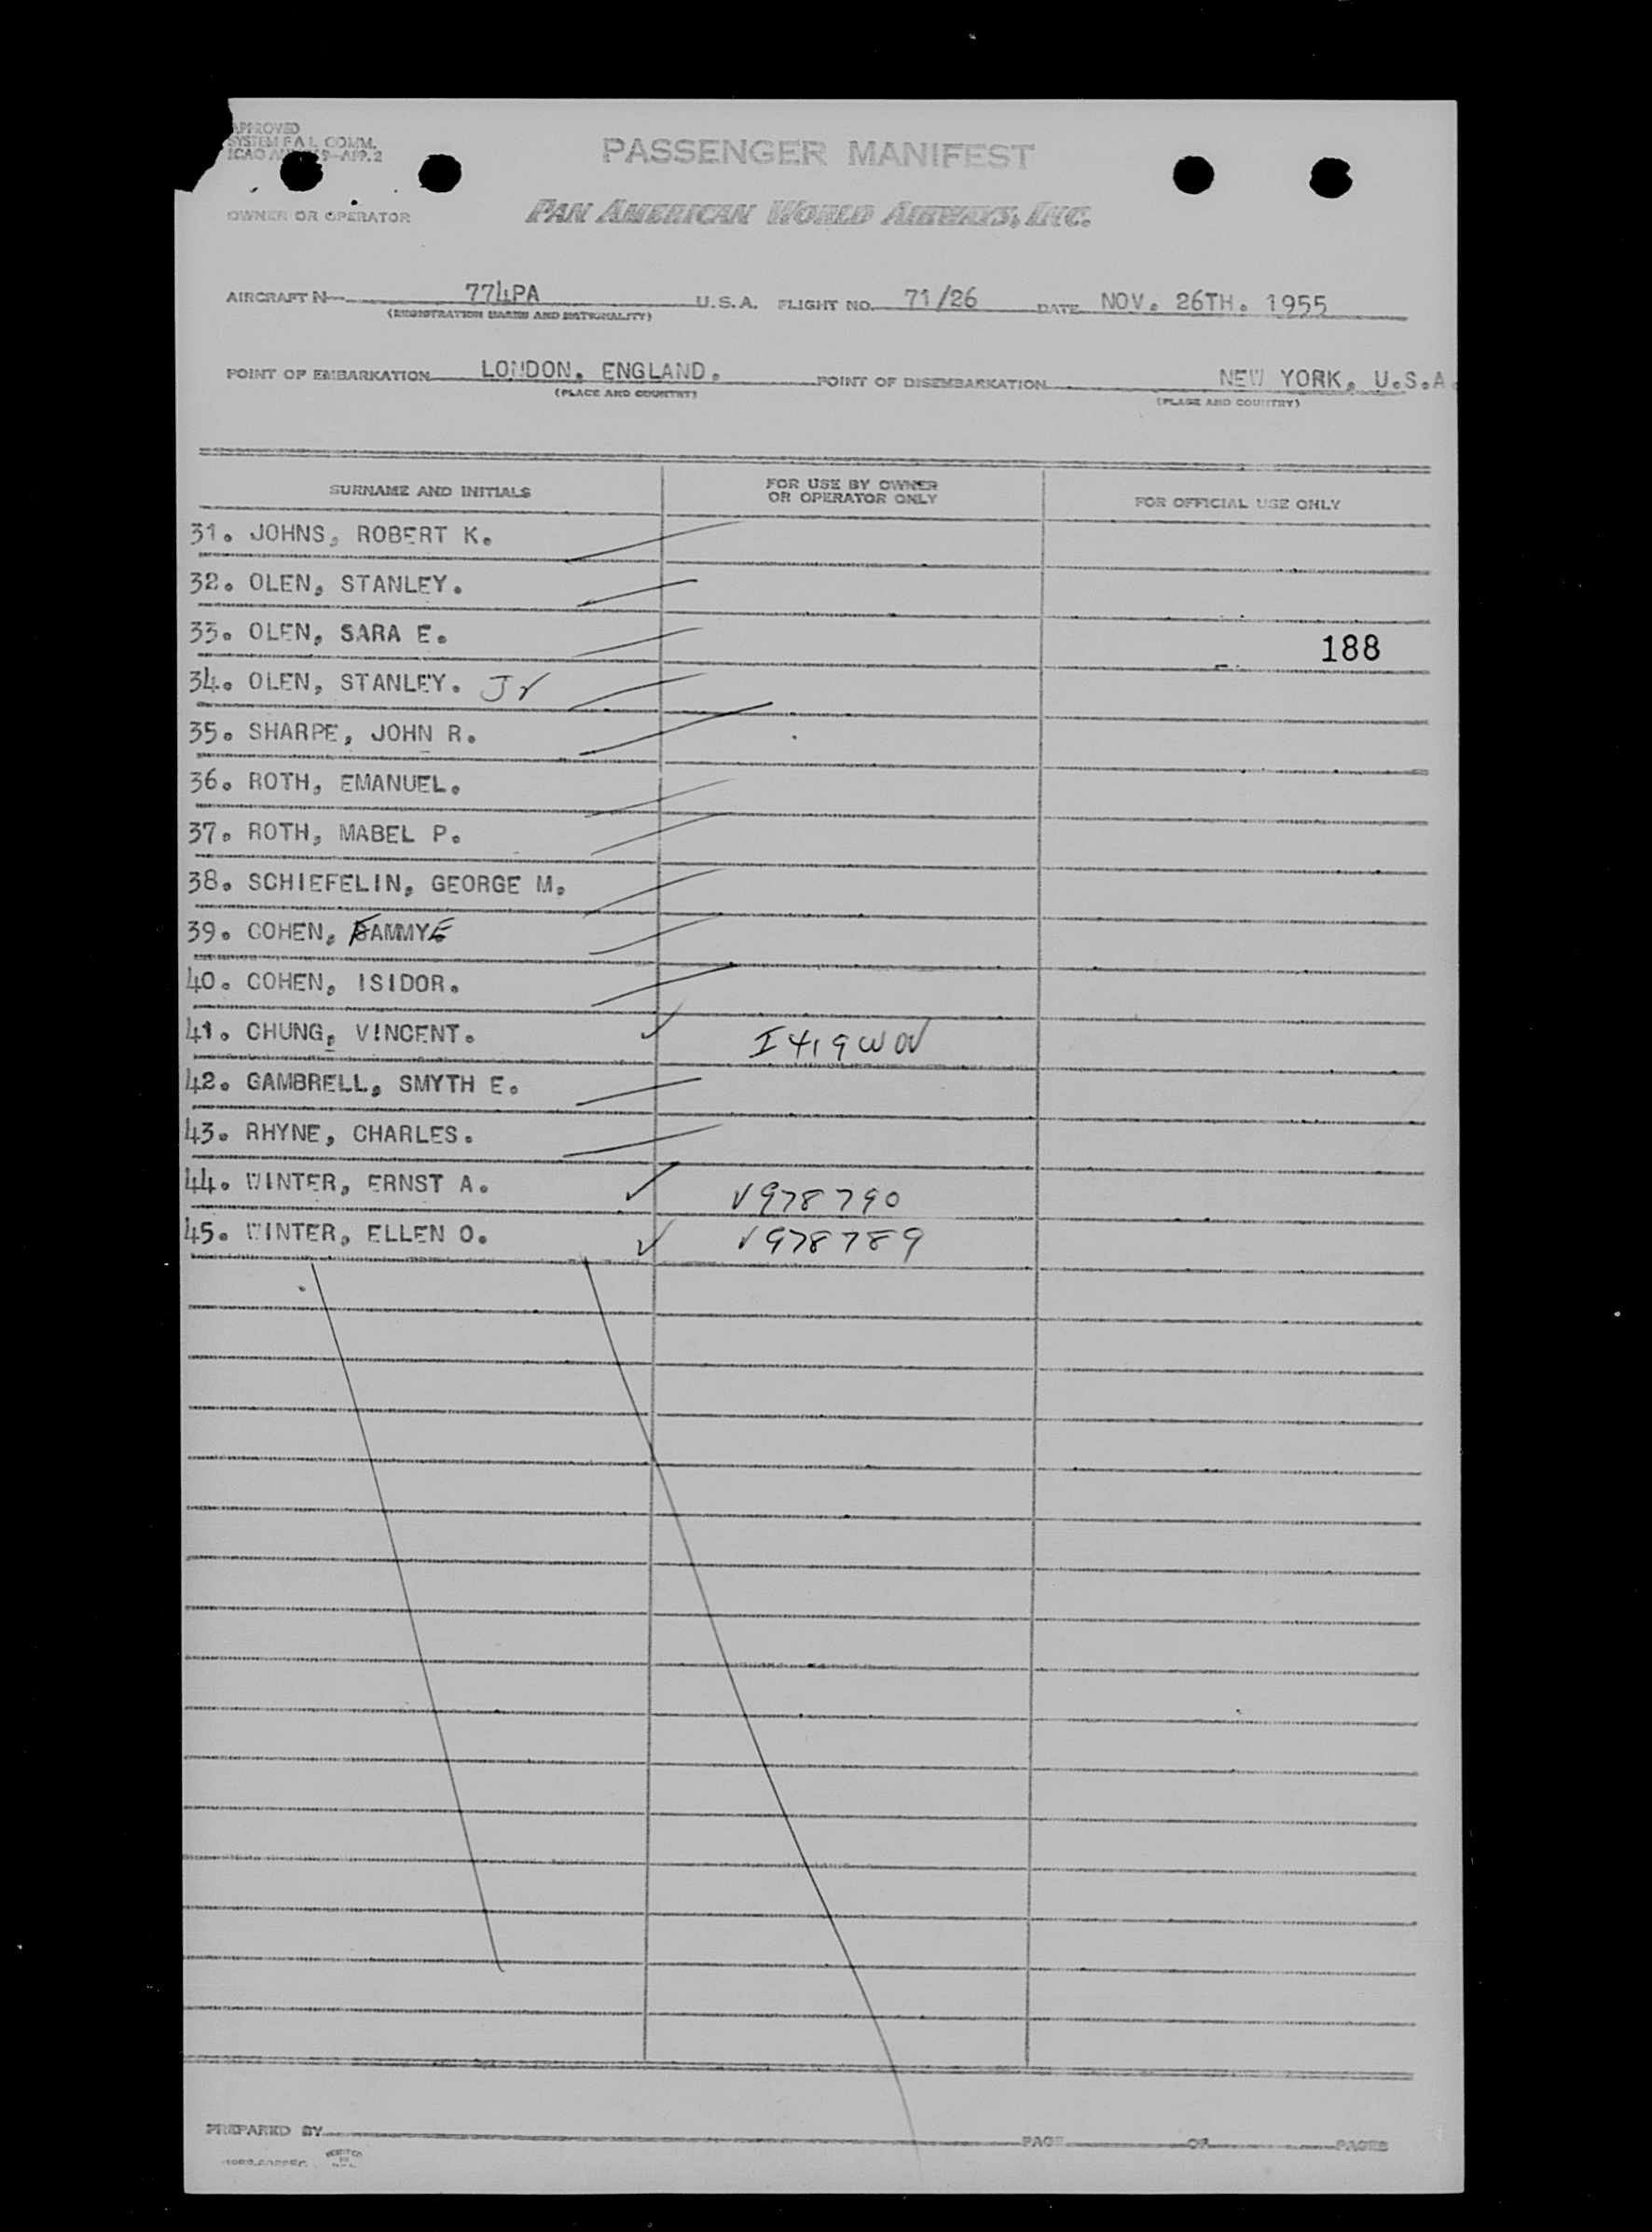 APPROVED
SYSTEM F A L COMM.
ICAO 9-APP.2
PASSENGER MANIFEST
OWNER OR OPERATOR
PAN AMERICAN WORLD AIRWAYS, INC.
AIRCRAFT N 774PA U.S.A. FLIGHT NO. 71/26 DATE NOV. 26TH. 1955
(REGISTRATION MARKS AND NATIONALITY)
POINT OF EMBARKATION LONDON, ENGLAND. POINT OF DISEMBARKATION NEW YORK, U.S.A.
(PLACE AND COUNTRY) (PLACE AND COUNTRY)
SURNAME AND INITIALS
FOR USE BY OWNER
OR OPERATOR ONLY
FOR OFFICIAL USE ONLY
31. JOHNS, ROBERT K.
32. OLEN, STANLEY.
33. OLEN, SARA E. 188
34. OLEN, STANLEY. Jr
35. SHARPE, JOHN R.
36. ROTH, EMANUEL.
37. ROTH, MABEL P.
38. SCHIEFELIN, GEORGE M.
39. COHEN, FAMMYE
40. COHEN, ISIDOR.
41. CHUNG, VINCENT.
42. GAMBRELL, SMYTH E.
43. RHYNE, CHARLES.
44. WINTER, ERNST A. V978790
45. WINTER, ELLEN O. V978789
PREPARED BY PAGE OF PAGES